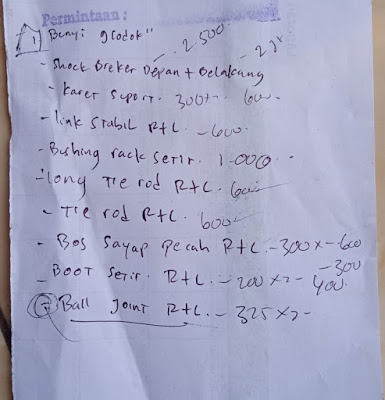 Permintaan :
1 Bunyi glodok" - 2.500
- Shock Breker Depan + Belakang
- Karet Suport. 300x- 600
- link stabil R+L. - 600.
- Bushing rack setir. 1.000
- long Tie rod R+L. 600
- Tie rod R+L. 600
- Bos Sayap pecah R+L. - 300 x - 600
- 300
- BOOT setir. R+L. - 200 x 2 - 400.
Ball Joint R+L. - 325 x 2 -